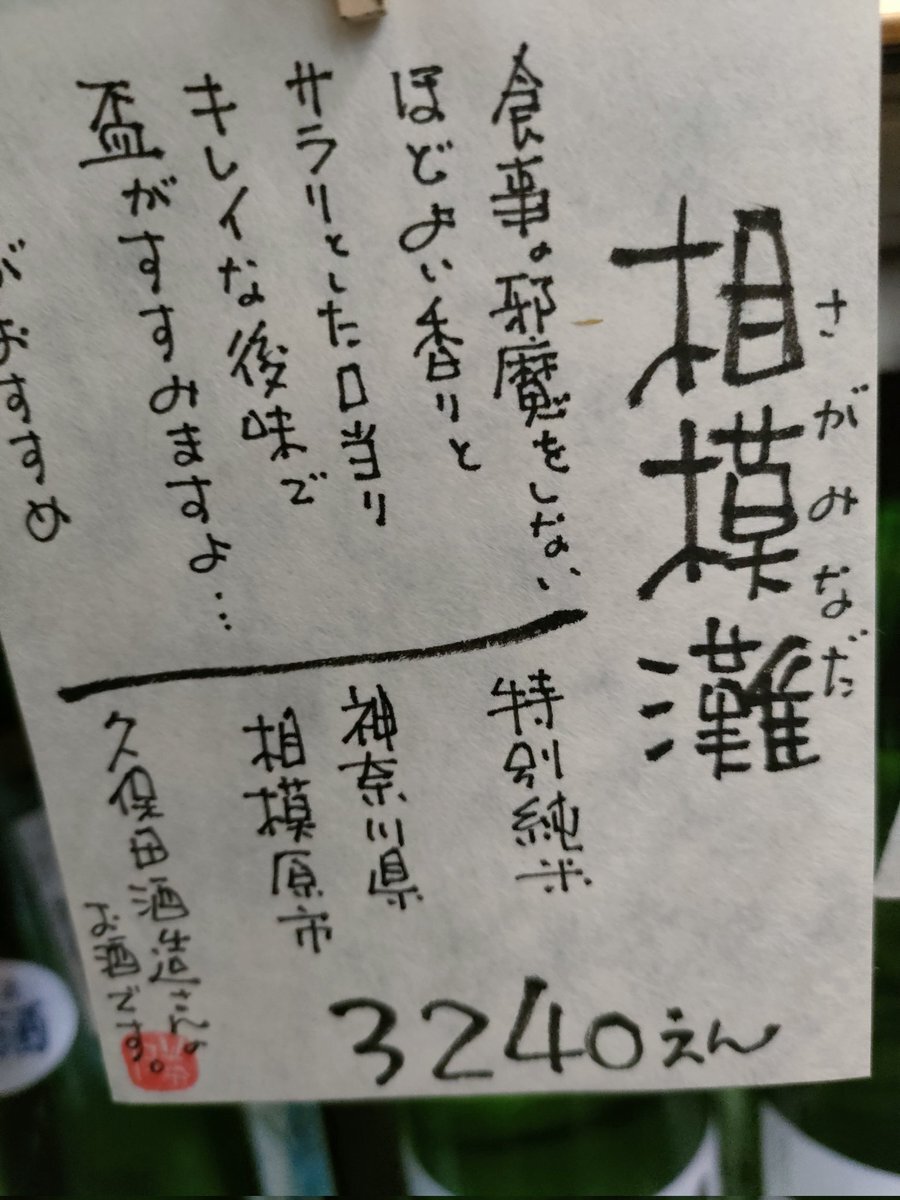 相模灘
さがみなだ
食事の邪魔をしない
ほどよい香りと
サラリとした口当り
キレイな後味で
盃がすすみますよ…
がおすすめ
特別純米
神奈川県
相模原市
久保田酒造さんの
お酒です。
3240えん